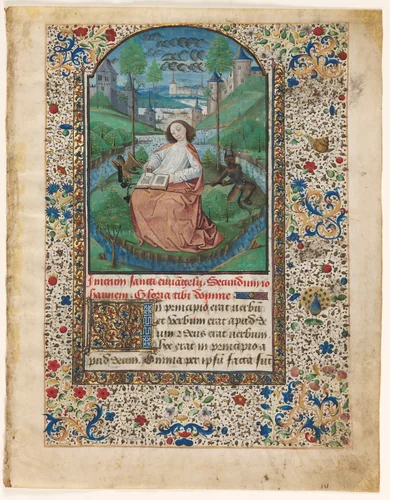 Inicium sancti euuangelij Secundum io
hannem. Gloria tibi domine
In principio erat verbu
et verbum erat apud de
um z deus erat verbum
hoc erat in principio a
pud deum. Omnia per ipsu facta sut